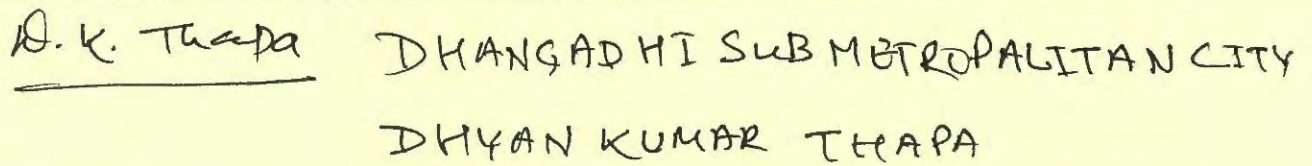 D.K. Thapa DHANGADHI SUB METROPALITAN CITY
DHYAN KUMAR THAPA